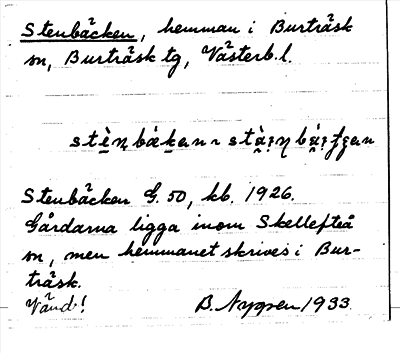 Stenbäcken, hemman i Burträsk
sn, Burträsk tg, Västerb. l.
Stenbäcken G. 50, kb. 1926.
Gårdarna ligga inom Skellefteå
sn, men hemmanet skrives i Bur-
träsk.
Vänd! B. Nygren 1933